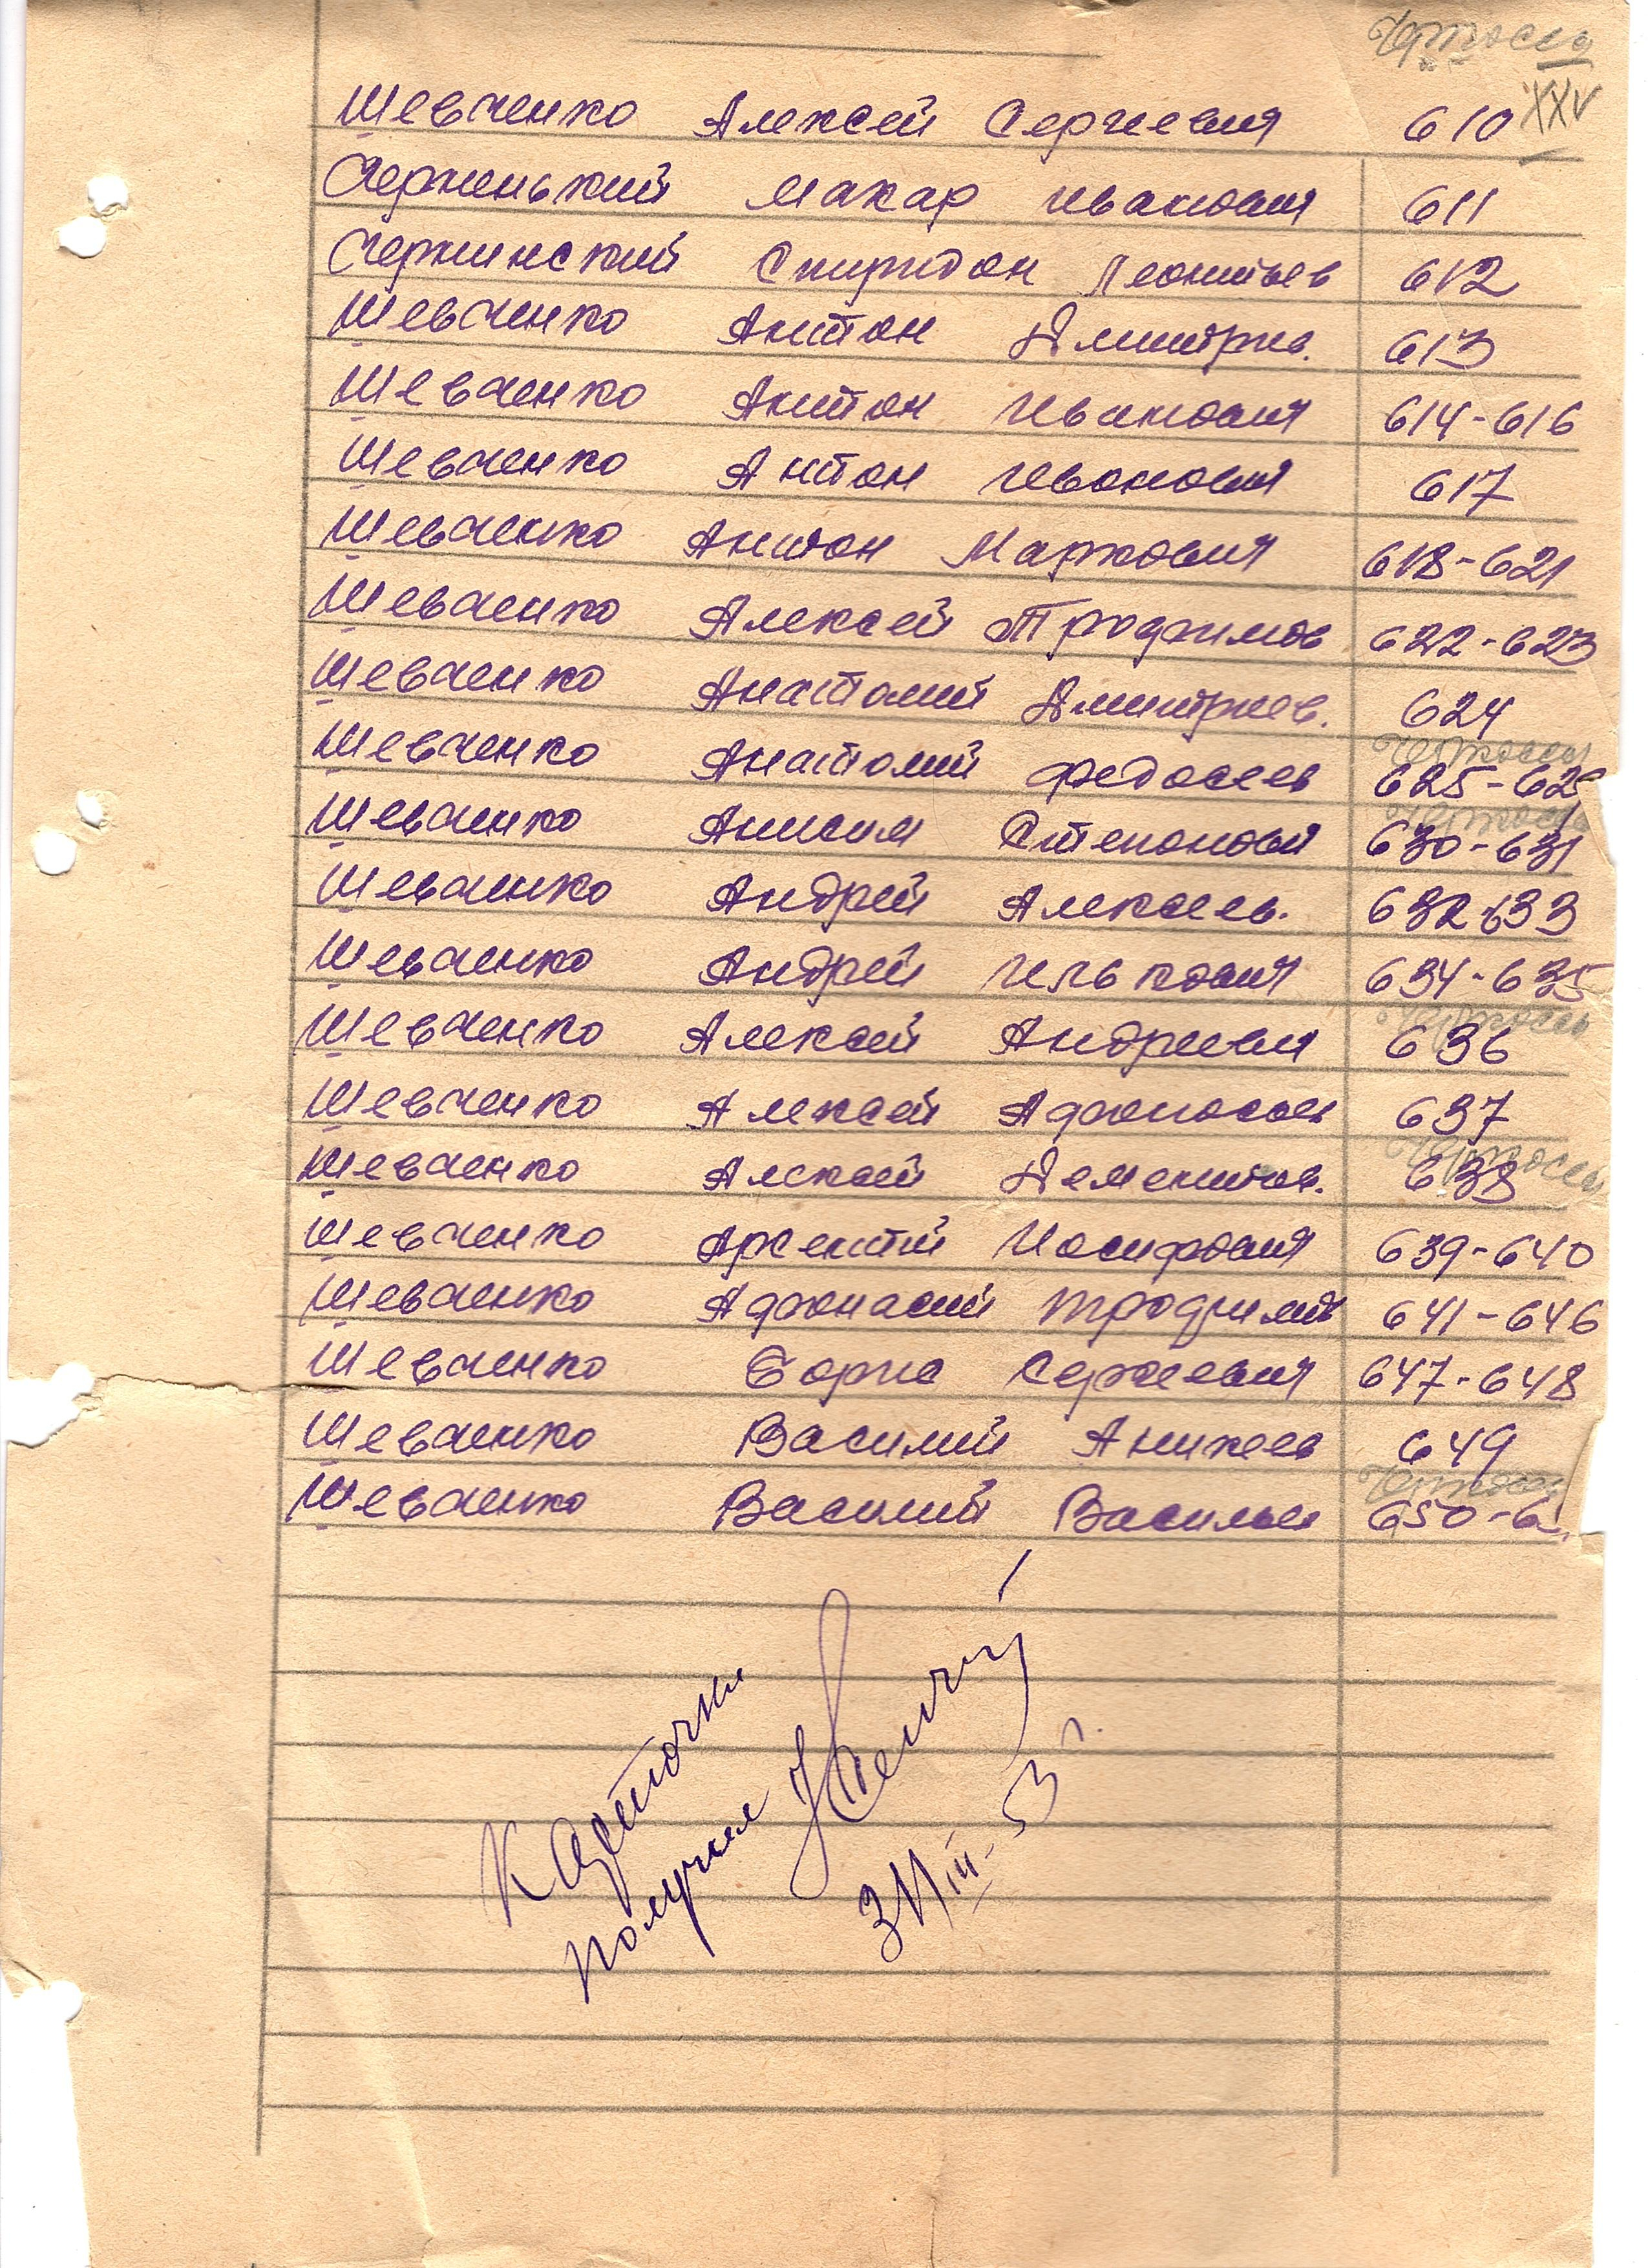 XXV
Шевченко Алексей Сергеевич 610
Черненький Макар Иванович 611
Чернинский Спиридон Леонтьев 612
Шевченко Антон Дмитрие. 613
Шевченко Антон Иванович 614-616
Шевченко Антон Иванович 617
Шевченко Антон Маркович 618-621
Шевченко Алексей Трофимов 622-623
Шевченко Анатолий Дмитриев. 624
Шевченко Анатолий Федосеев 625-62
Шевченко Анисим Степанович 630-631
Шевченко Андрей Алексеев. 632-633
Шевченко Андрей Илькович 634-635
Шевченко Алексей Андреевич 636
Шевченко Алексей Афанасьев 637
Шевченко Алексей Дементьев. 638
Шевченко Арсентий Иосифович 639-640
Шевченко Афонасий Трофимов 641-646
Шевченко Борис Сергеевич 647-648
Шевченко Василий Аникеев 649
Шевченко Василий Васильев 650-6
Карточки
получил
31/III-53 г.